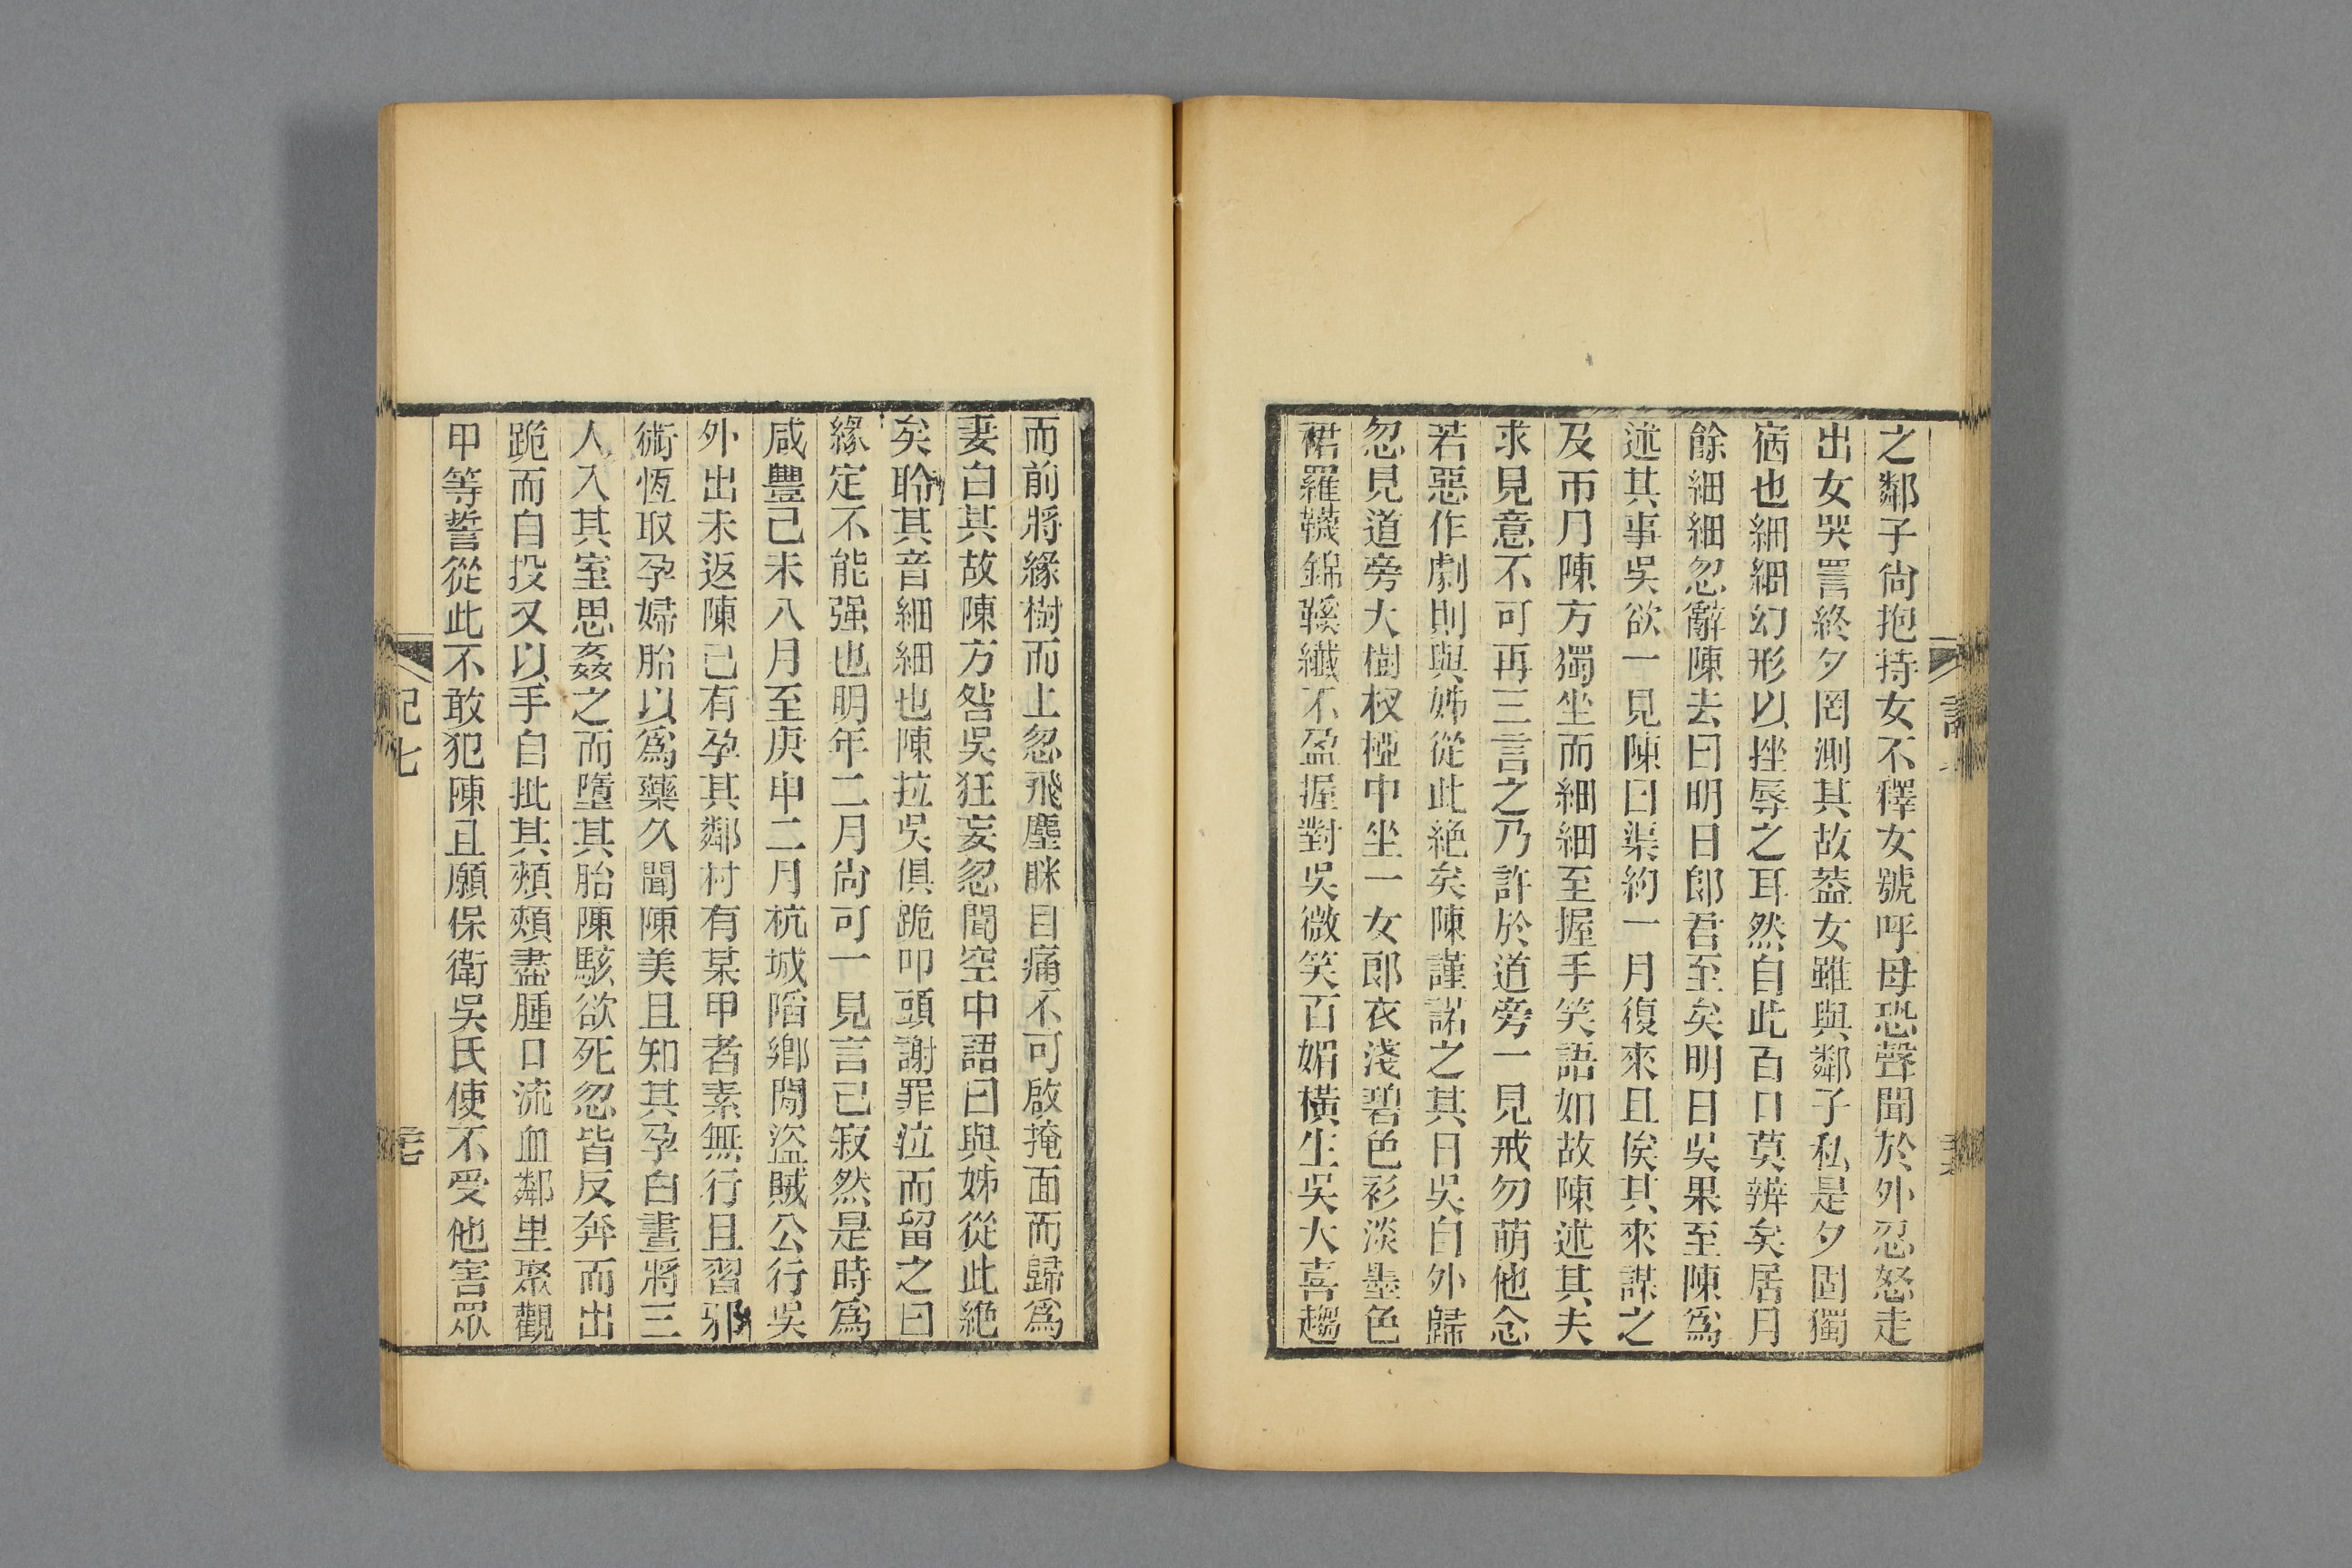 之鄰子尙抱持女不釋女號呼母恐聲聞於外忍怒走
出女哭詈終夕罔測其故葢女雖與鄰子私是夕固獨
宿也細細幻形以挫辱之耳然自此百口莫辨矣居月
餘細細忽辭陳去曰明日郞君至矣明日吳果至陳爲
述其事吳欲一見陳曰渠約一月復來且俟其來謀之
及帀月陳方獨坐而細細至握手笑語如故陳述其夫
求見意不可再三言之乃許於道旁一見戒勿萌他念
若惡作劇則與姊從此絶矣陳謹諾之其日吳自外歸
忽見道旁大樹杈椏中坐一女郞衣淺碧色衫淡墨色
裙羅韈錦鞵纖不盈握對吳微笑百媚橫生吳大喜趨
而前將緣樹而上忽飛塵眯目痛不可啟掩面而歸爲
妻白其故陳方咎吳狂妄忽聞空中語曰與姊從此絶
矣聆其音細細也陳拉吳俱跪叩頭謝罪泣而留之曰
緣定不能强也明年二月尙可一見言已寂然是時爲
咸豐己未八月至庚申二月杭城陷鄕閒盜賊公行吳
外出未返陳已有孕其鄰村有某甲者素無行且習邪
術恆取孕婦胎以爲藥久聞陳美且知其孕白晝將三
人入其室思姦之而墮其胎陳駭欲死忽皆反奔而出
跪而自投又以手自批其頰頰盡腫口流血鄰里聚觀
甲等誓從此不敢犯陳且願保衛吳氏使不受他害眾
記七